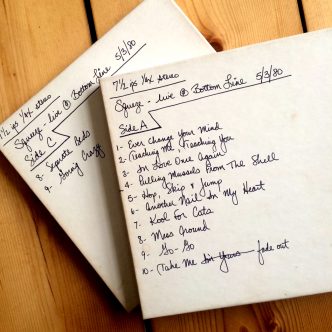 7½ ips ½x stereo
Squeeze - live @ Bottom Line 5/3/80
Side C
8- Separate Beds
9- Going Crazy
7½ ips ½x stereo
Squeeze - live @ Bottom Line 5/3/80
Side A
1- Ever Change Your Mind
2- Touching Me, Touching You
3- In Love Once Again
4- Pulling Mussels From The Shell
5- Hop, Skip & Jump
6- Another Nail In My Heart
7- Kool for Cats
8- Mess Around
9- Go-Go
10- Take Me I'm Yours - fade out